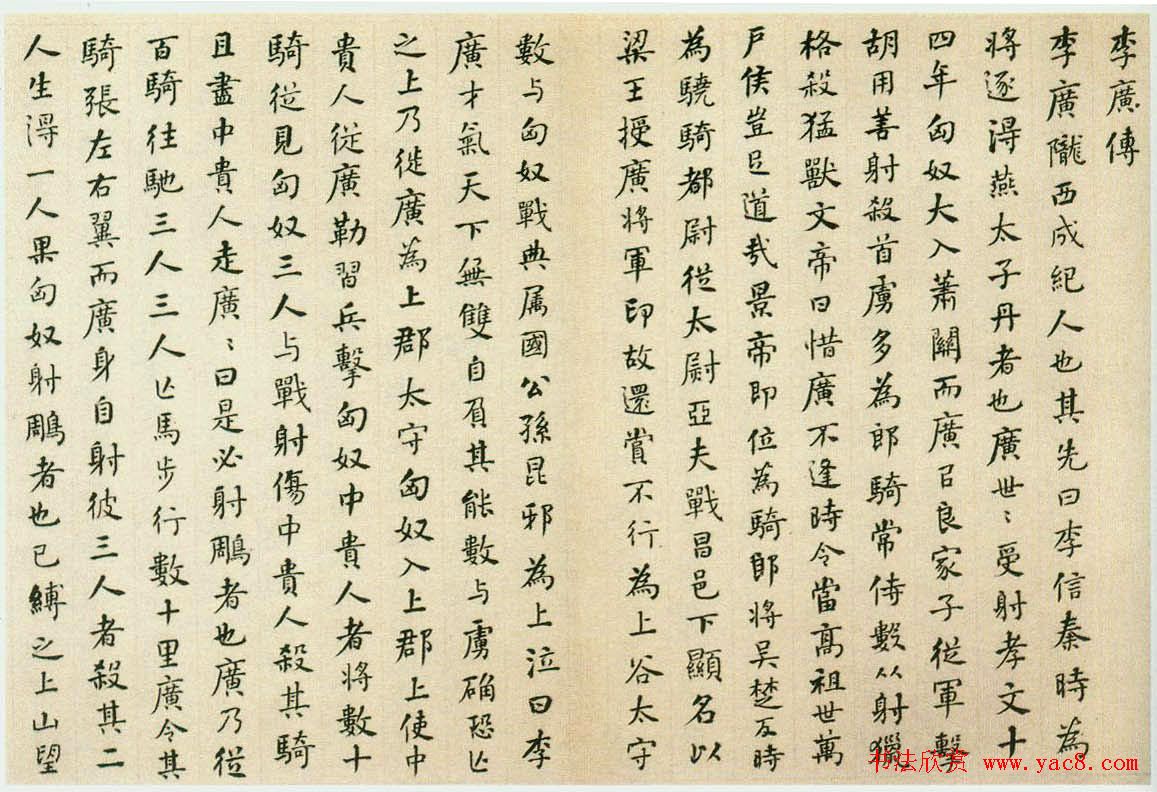 李廣傳
李廣隴西成紀人也其先曰李信秦時為
將逐淂燕太子丹者也廣世〻受射孝文十
四年匈奴大入蕭關而廣㠯良家子從軍擊
胡用善射殺首虜多為郎騎常侍數從射獵
格殺猛獸文帝曰惜廣不逢時令當高祖世萬
戶侯豈㠯道哉景帝即位為騎郎將吳楚反時
為驍騎都尉從太尉亞夫戰昌邑下顯名以
梁王授廣將軍印故還賞不行為上谷太守
數与匈奴戰典属國公孫昆邪為上泣曰李
廣才氣天下無雙自負其能數与虜确恐亾
之上乃徙廣為上郡太守匈奴入上郡上使中
貴人從廣勒習兵擊匈奴中貴人者將數十
騎從見匈奴三人与戰射傷中貴人殺其騎
且盡中貴人走廣〻曰是必射鵰者也廣乃從
百騎往馳三人三人亾馬步行數十里廣令其
騎張左右翼而廣身自射彼三人者殺其二
人生淂一人果匈奴射鵰者也已縛之上山望
书法欣赏 www.yac8.com